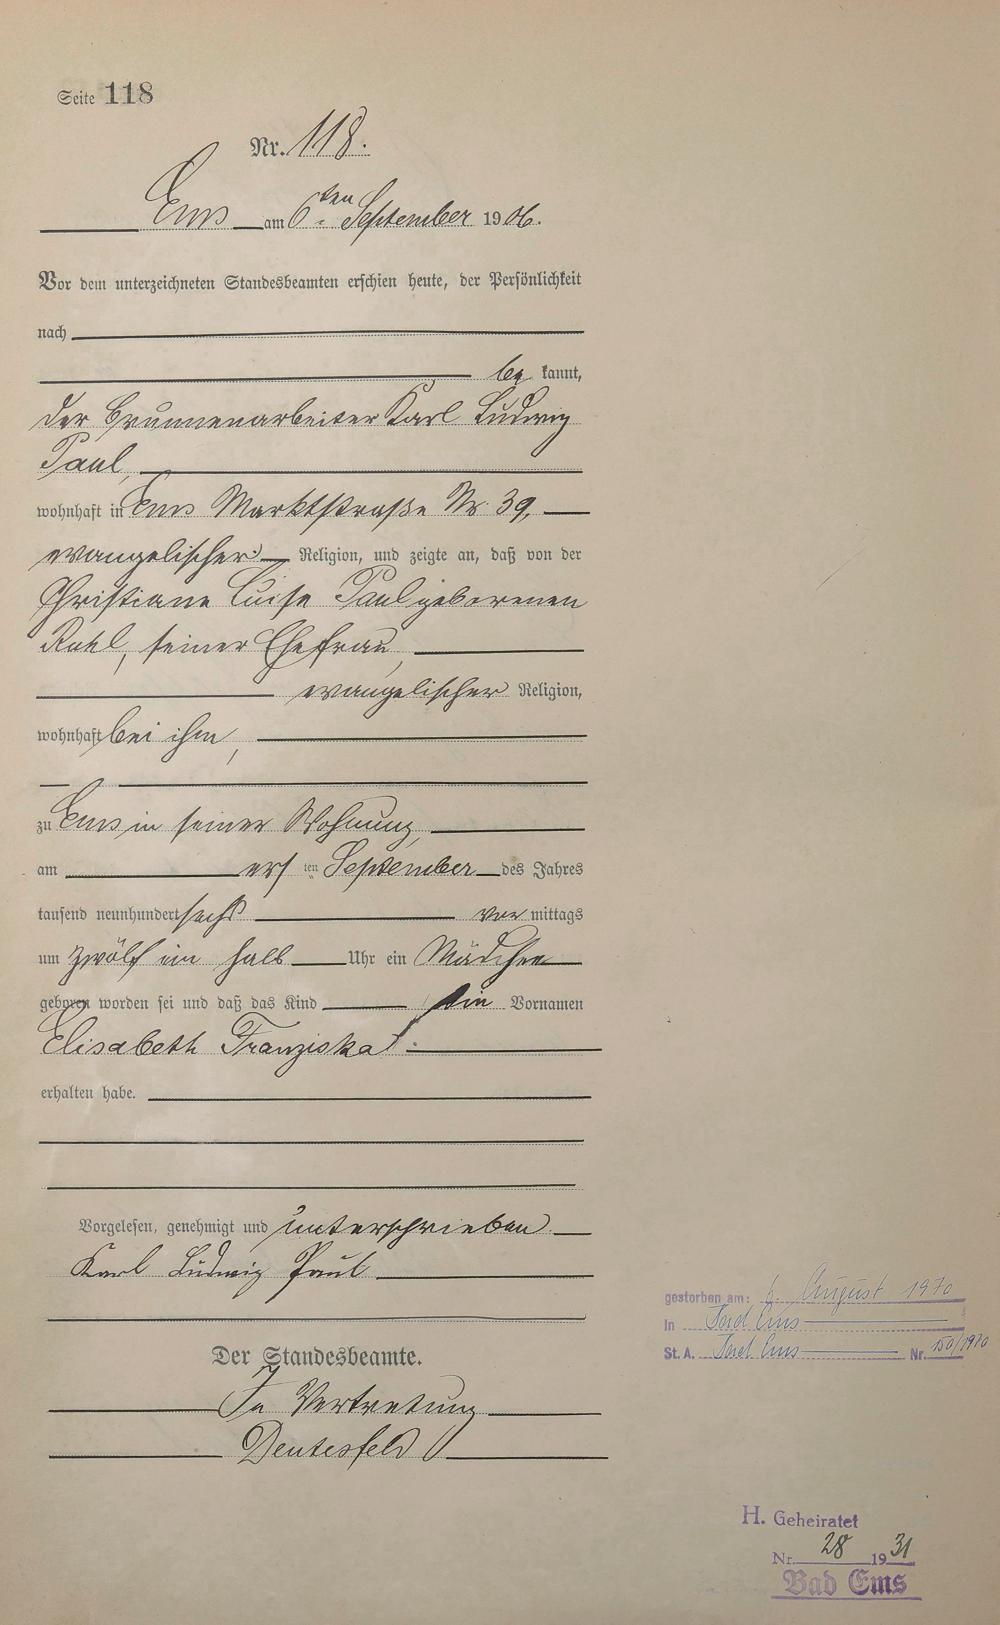 Seite 118
Nr. 118.
Ems am 6ten September 1906.
Vor dem unterzeichneten Standesbeamten erschien heute, der Persönlichkeit
nach
be kannt,
der Brunnenarbeiter Karl Ludwig
Paul,
wohnhaft in Ems Marktstraße Nr. 39,
evangelischer Religion, und zeigte an, daß von der
Christiane Luise Paul geborenen
seiner Ehefrau,
evangelischer Religion,
wohnhaft bei ihm,
zu Ems in seiner Wohnung,
am ersten September des Jahres
tausend neunhundert sechs vor mittags
um zwölf ein halb Uhr ein Mädchen
geboren worden sei und daß das Kind die Vornamen
Elisabeth Franziska
erhalten habe.
Vorgelesen, genehmigt und unterschrieben
Karl Ludwig Paul
Der Standesbeamte.
In Vertretung
gestorben am: 6. August 1970
In Bad Ems
St. A. Bad Ems Nr. 150/1970
H. Geheiratet
Nr. 28 1931
Bad Ems